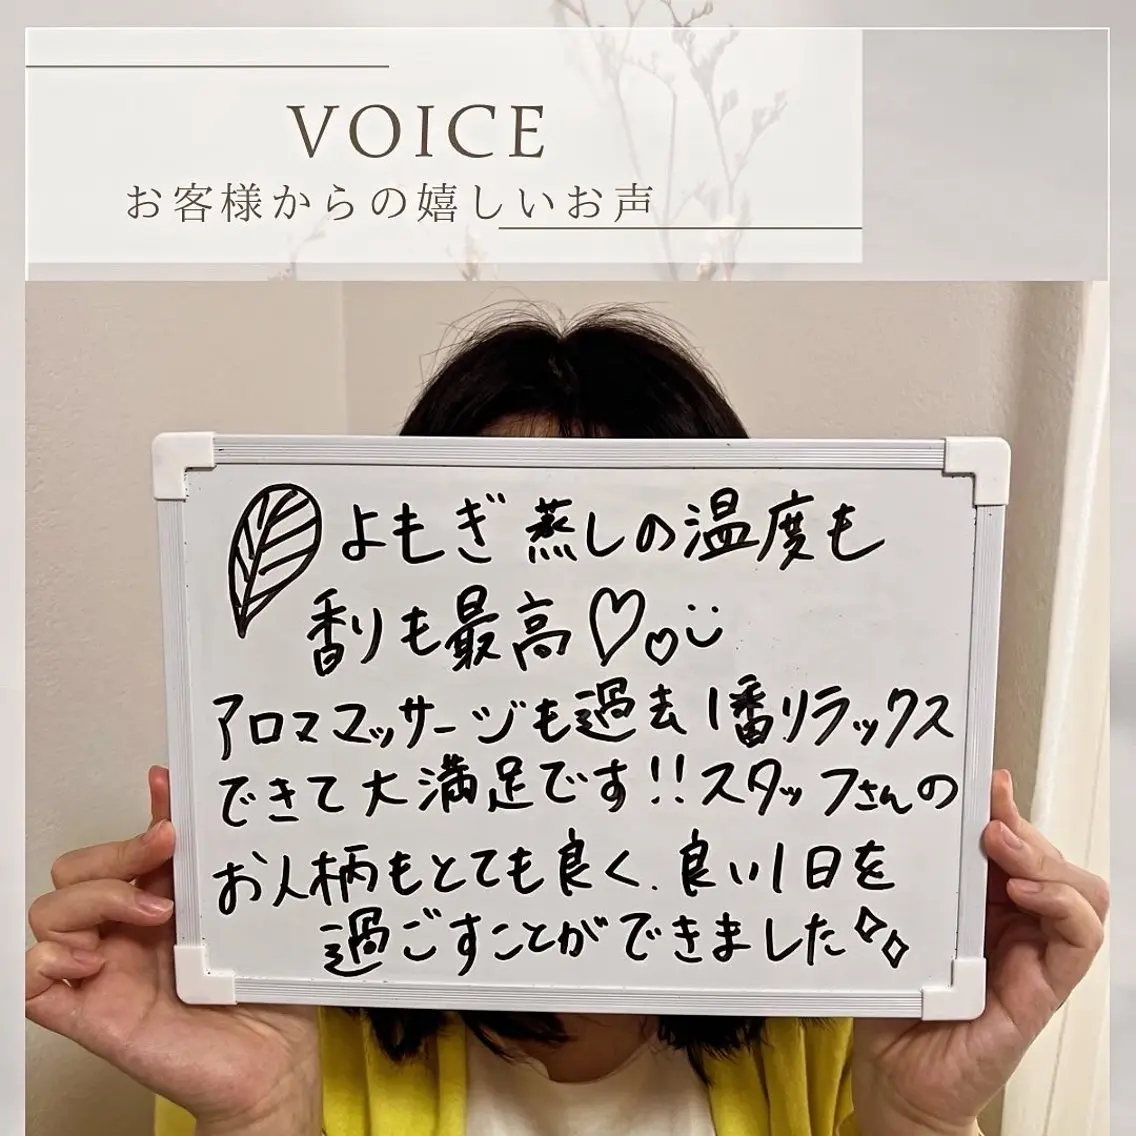 VOICE
お客様からの嬉しいお声
よもぎ蒸しの温度も
香りも最高♡♡
アロママッサージも過去1番リラックス
できて大満足です!!スタッフさんの
お人柄もとても良く、良い1日を
過ごすことができました